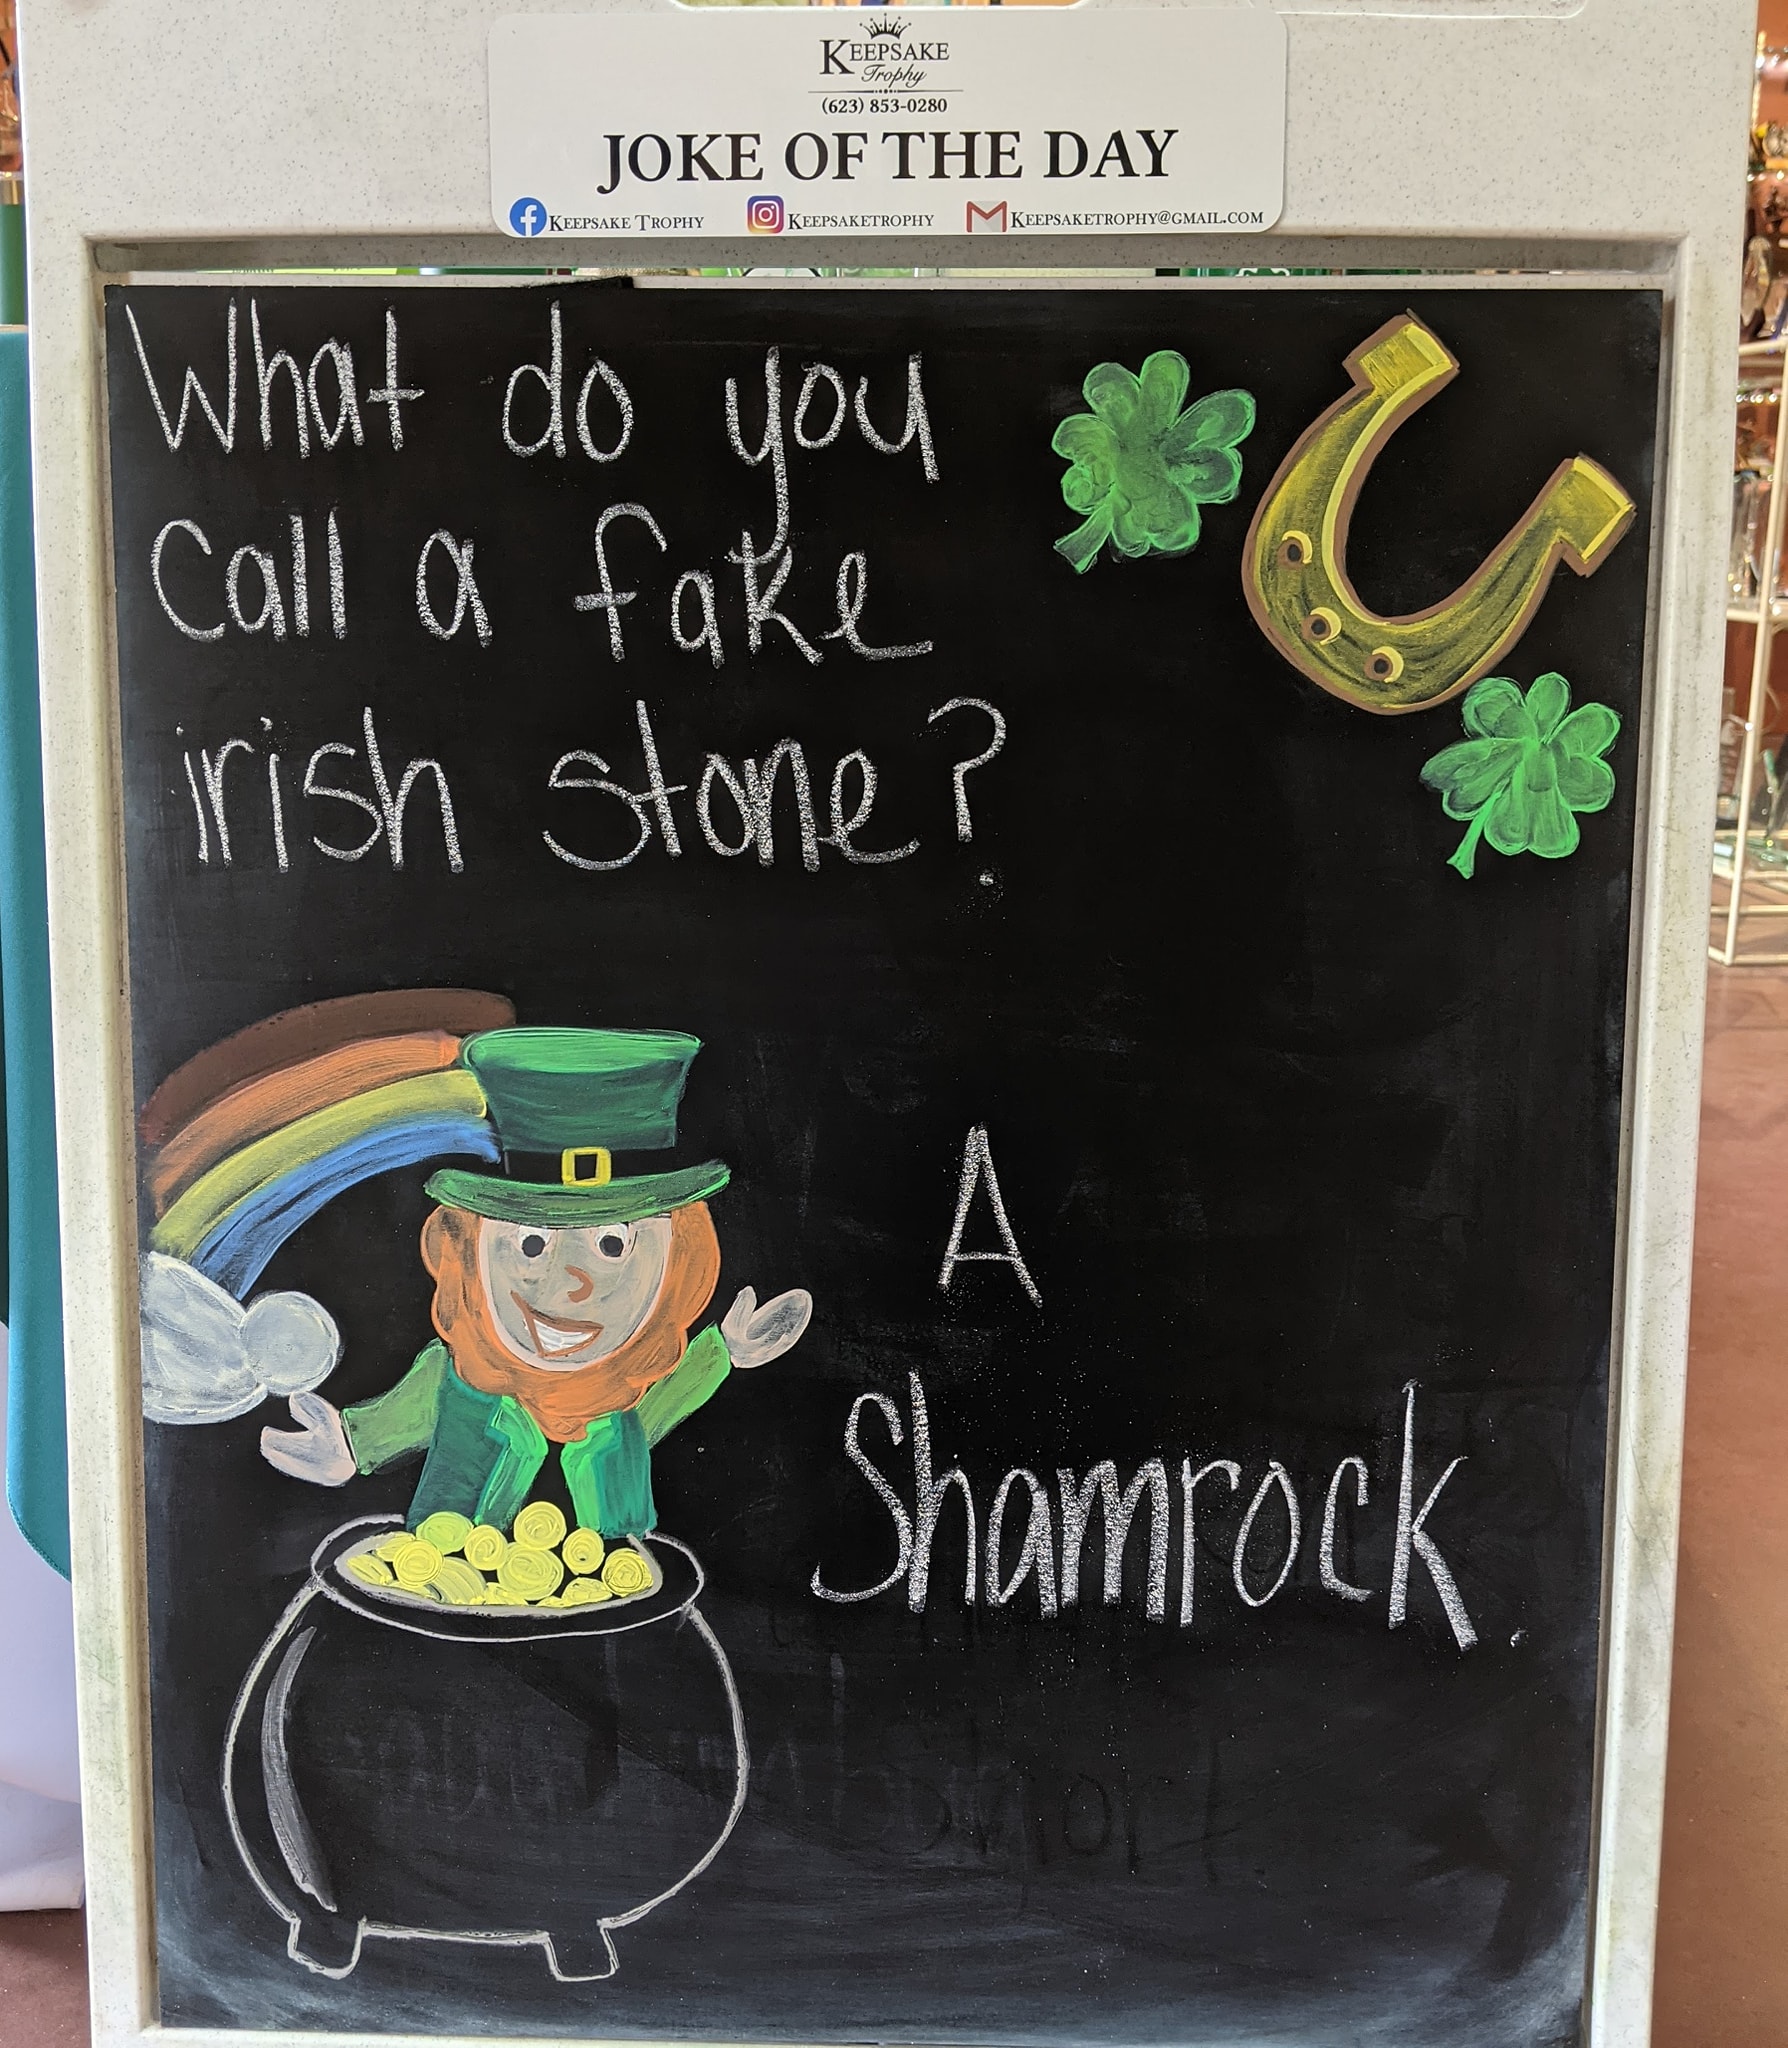 KEEPSAKE
Trophy
(623) 853-0280
JOKE OF THE DAY
KEEPSAKE TROPHY KEEPSAKETROPHY KEEPSAKETROPHY@GMAIL.COM
What do you
Call a fake
irish stone?
A
Shamrock.